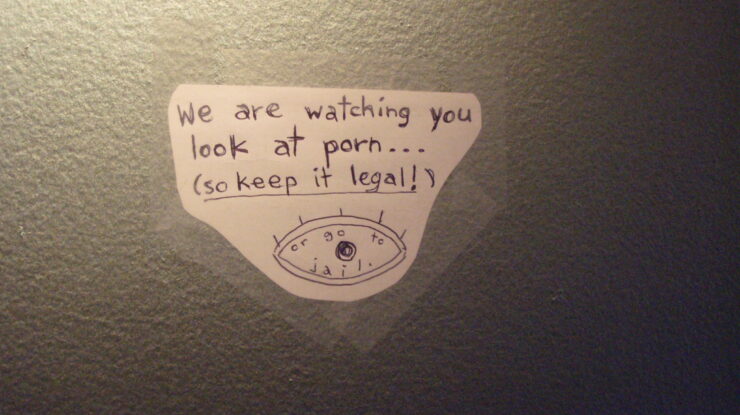 We are watching you
look at porn...
(so keep it legal!)
or go to
jail.